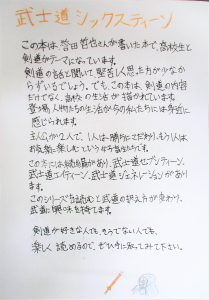 武士道シックスティーン
この本は、誉田哲也さんが書いた本で、高校生と
剣道がテーマになっています。
剣道の話と聞いて、堅苦しく思った方が少なか
らずいるでしょう。でも、この本は、剣道の内容
だけでなく、高校の生活が描かれています。
登場人物たちの生活が今の私たちには身近に
感じられます。
主人公が2人で、1人は勝ちにこだわり、もう1人は
お気楽に楽しむという
この方には続編があり、武士道セブンティーン、
武士道エイティーン、武士道ジェネレーションがあり
ます。
このシリーズを読むと武道の捉え方が変わり、
武道に興味を持てます。
剣道が好きな人でも、そうでない人でも、
楽しく読めるので、ぜひ手に取ってみて下さい。